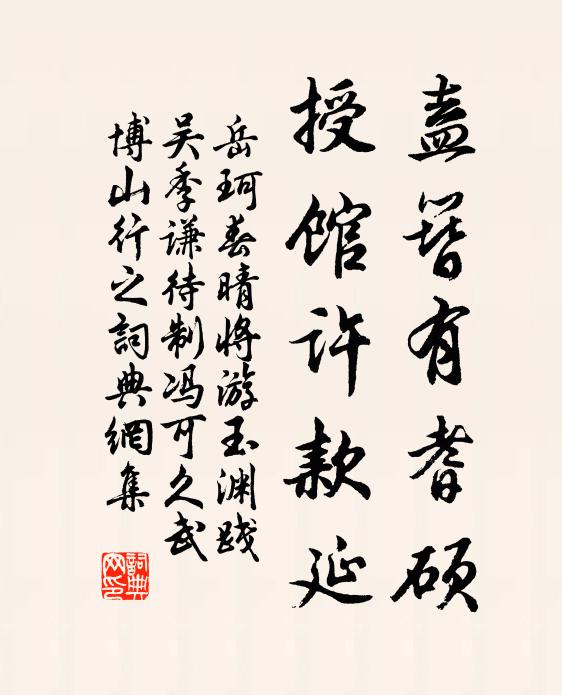 盍簪有耆硕
授馆许款延
岳珂春晴将游玉渊践
吴季谦待制冯可久武
博山行之詞典網集
詞典网印